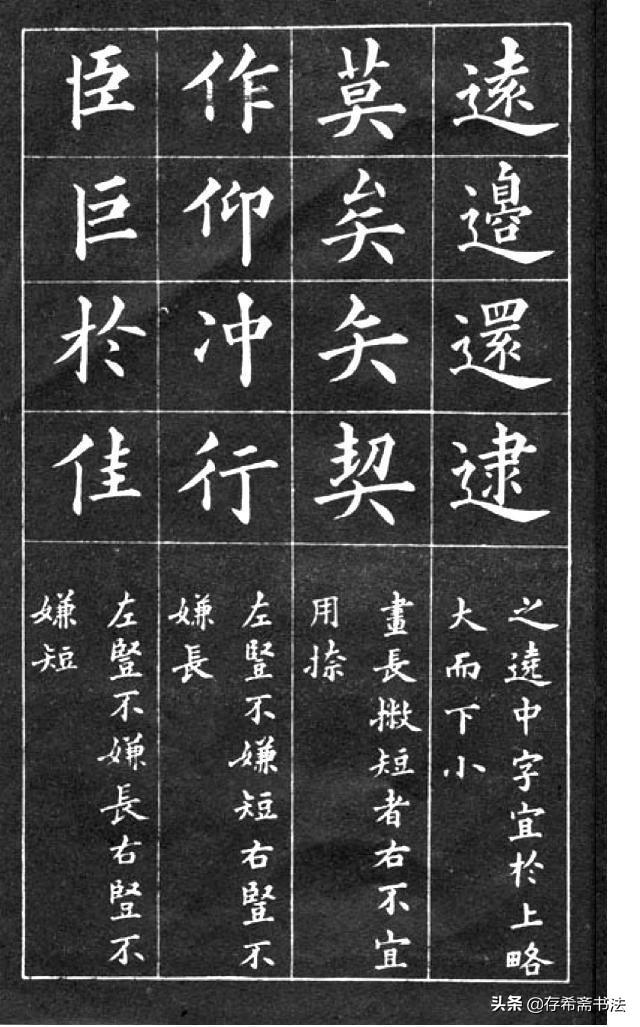 遠邊還逮
之遶中字宜於上略
大而下小
莫矣矢契
畫長撇短者右不宜
用捺
作仰冲行
左豎不嫌短右豎不
嫌長
臣巨於佳
左豎不嫌長右豎不
嫌短
头条 @存希斋书法